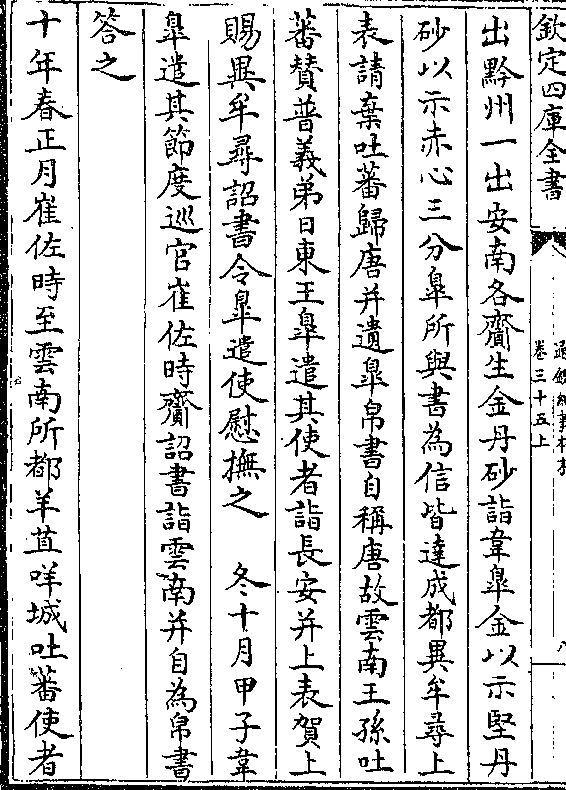 欽定四庫全書
通鑑紀事本末
卷三十五上
八
出黔州一出安南各齎生金丹砂詣韋臯金以示堅丹
砂以示赤心三分臯所與書為信皆達成都異牟尋上
表請棄吐蕃歸唐并遺臯帛書自稱唐故雲南王孫吐
蕃贊普義弟日東王臯遣其使者詣長安并上表賀上
賜異牟尋詔書令臯遣使慰撫之 冬十月甲子韋
臯遣其節度巡官崔佐時齎詔書詣雲南并自為帛書
答之
十年春正月崔佐時至雲南所都羊苴咩城吐蕃使者